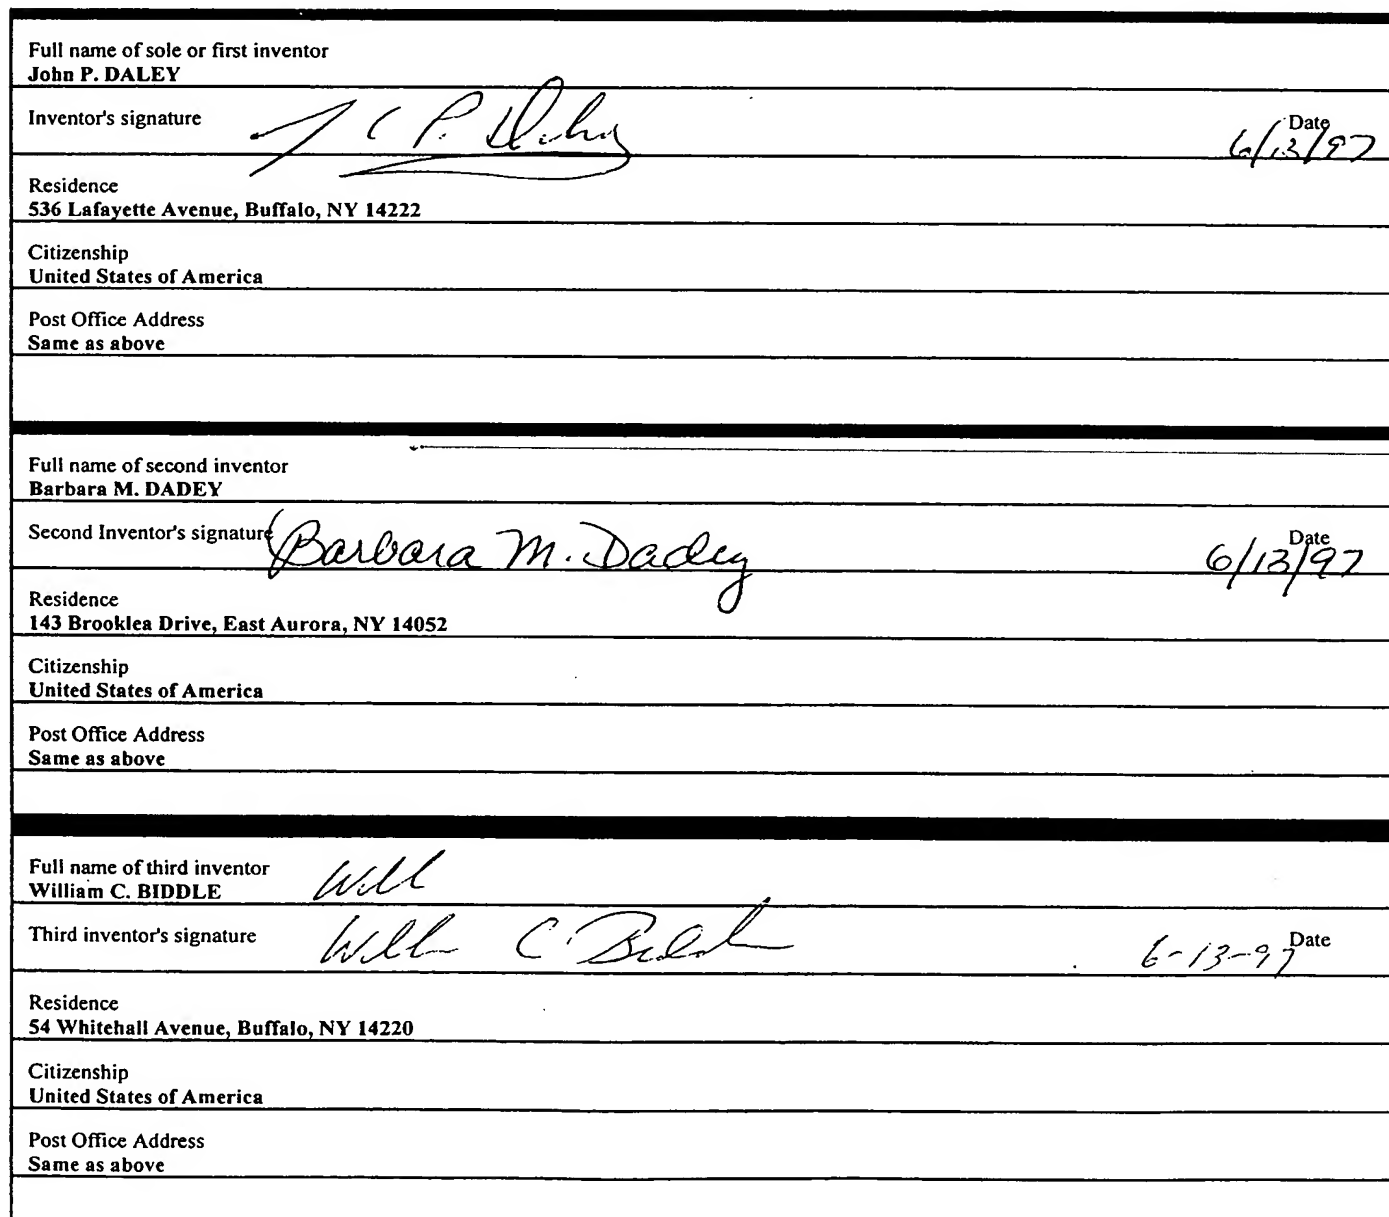 Full name of sole or first inventor
John P. DALEY
Inventor's signature
Date
6/13/97
Residence
536 Lafayette Avenue, Buffalo, NY 14222
Citizenship
United States of America
Post Office Address
Same as above
Full name of second inventor
Barbara M. DADEY
Second Inventor's signature Barbara M. Dadey
Date
6/13/97
Residence
143 Brooklea Drive, East Aurora, NY 14052
Citizenship
United States of America
Post Office Address
Same as above
Full name of third inventor
William C. BIDDLE
Will
Third inventor's signature
Date
6-13-97
Residence
54 Whitehall Avenue, Buffalo, NY 14220
Citizenship
United States of America
Post Office Address
Same as above